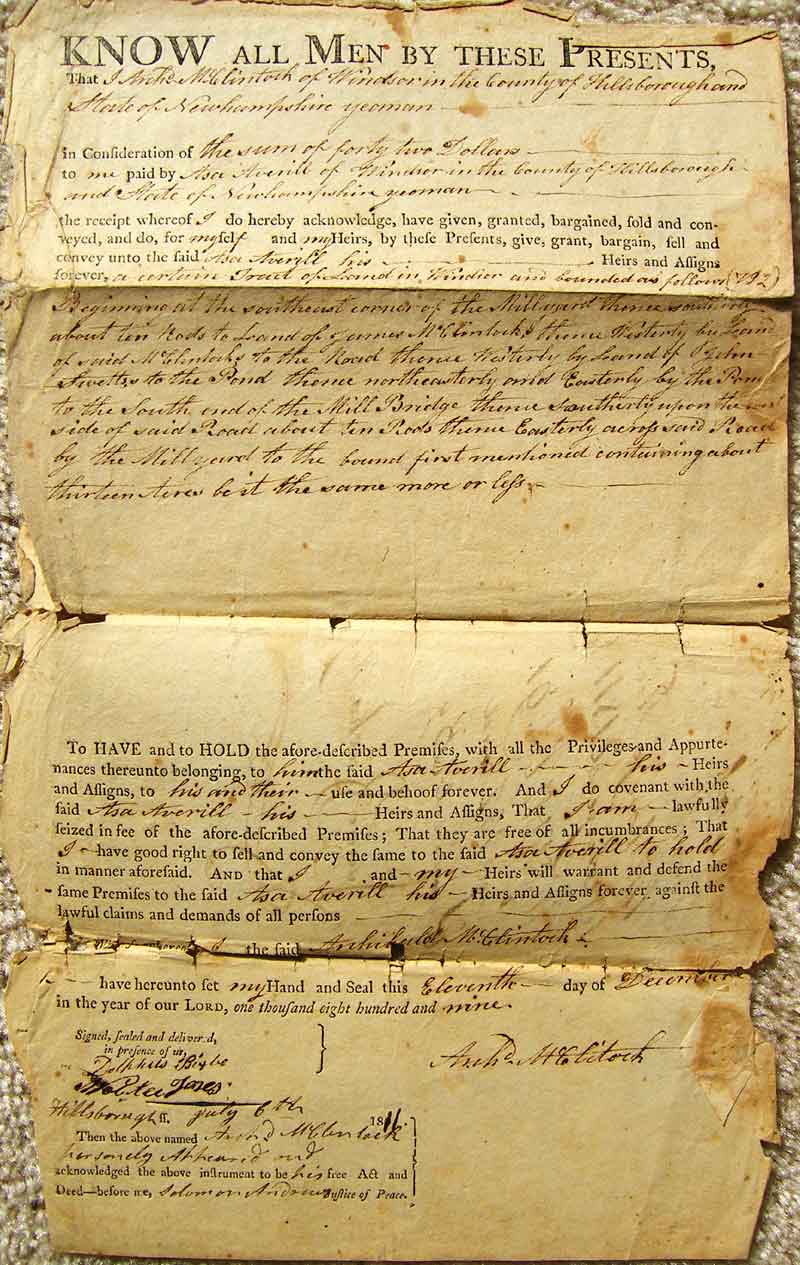 KNOW ALL MEN BY THESE PRESENTS,
That I Archd. McClintock of Windsor in the County of Hillsborough and
State of Newhampshire yeoman
in Conſideration of the sum of forty two Dollars
to me paid by Asa Averill of Windsor in the County of Hillsborough
and State of Newhampshire yeoman
the receipt whereof I do hereby acknowledge, have given, granted, bargained, ſold and con-
veyed, and do, for myself and my Heirs, by theſe Preſents, give, grant, bargain, ſell and
convey unto the ſaid Asa Averill his Heirs and Aſſigns
forever, a certain Tract of Land in Windsor and bounded as follows
Beginning at the southeast corner of the Millyard thence southerly
about ten Rods to Land of James McClintocks thence Westerly by Land
of said McClintocks to the Road thence Westerly by Land of John
Swetts to the Pond thence northeasterly and Easterly by the Pond
to the South end of the Mill Bridge thence Southerly upon the
side of said Road about ten Rods thence Easterly across said Road
by the Millyard to the bound first mentioned containing about
thirteen Acres be it the same more or less
To HAVE and to HOLD the afore-deſcribed Premiſes, with all the Privileges and Appurte-
nances thereunto belonging, to him the ſaid Asa Averill his Heirs
and Aſſigns, to his and their uſe and behoof forever. And I do covenant with the
ſaid Asa Averill his Heirs and Aſſigns, That I am lawfully
ſeized in fee of the afore-deſcribed Premiſes; That they are free of all incumbrances; That
I have good right to ſell and convey the ſame to the ſaid Asa Averill to hold
in manner aforeſaid. AND that I and my Heirs will warrant and defend the
ſame Premiſes to the ſaid Asa Averill his Heirs and Aſſigns forever, againſt the
lawful claims and demands of all perſons
I the ſaid Archibald McClintock
have hereunto ſet my Hand and Seal this Eleventh day of December
in the year of our LORD, one thouſand eight hundred and nine.
Signed, ſealed and deliver.d,
in preſence of us,
Archd. McClitock
Jones
Hillsborough ſſ. July 6th 1811.
Then the above named Archd McClintock
personely Appeard and
acknowledged the above inſtrument to be his free Act and
Deed—before me, Solomon Andrews Juſtice of Peace.